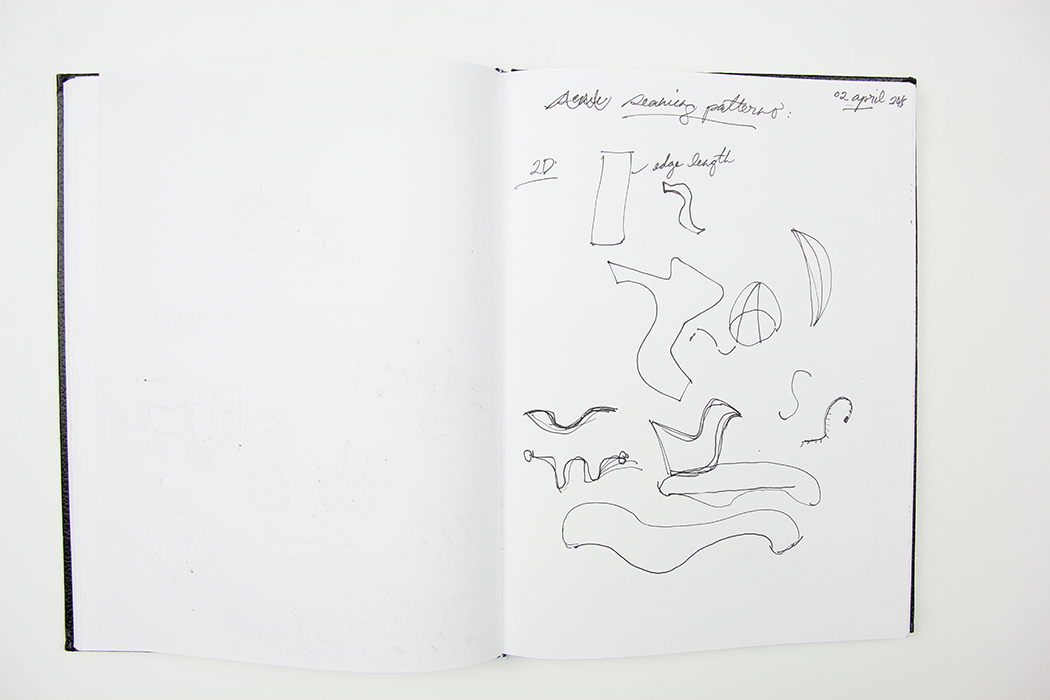 seaming patterns:
02 april
2D
edge length